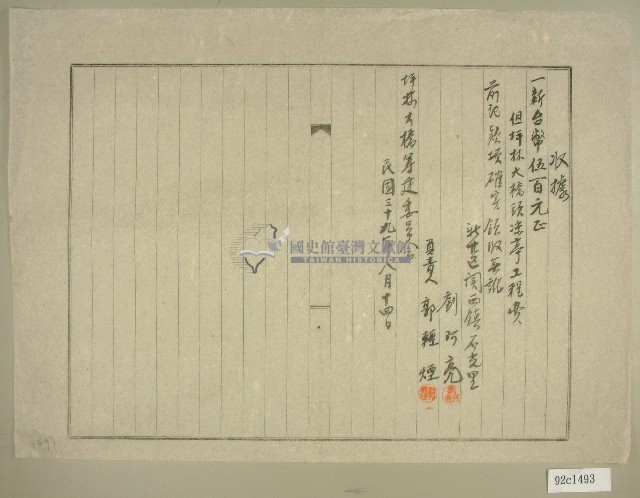 收據
一新台幣伍百元正
但坪林大橋頭涼亭工程費
前記款項確实領收無訛
新竹區関西鎮石光里
劉阿亮
負責人 郭輕煙
坪林大橋籌建委員會
民國三十九年八月十四日
國史館臺灣文獻館
TAIWAN HISTORICA
92c1493